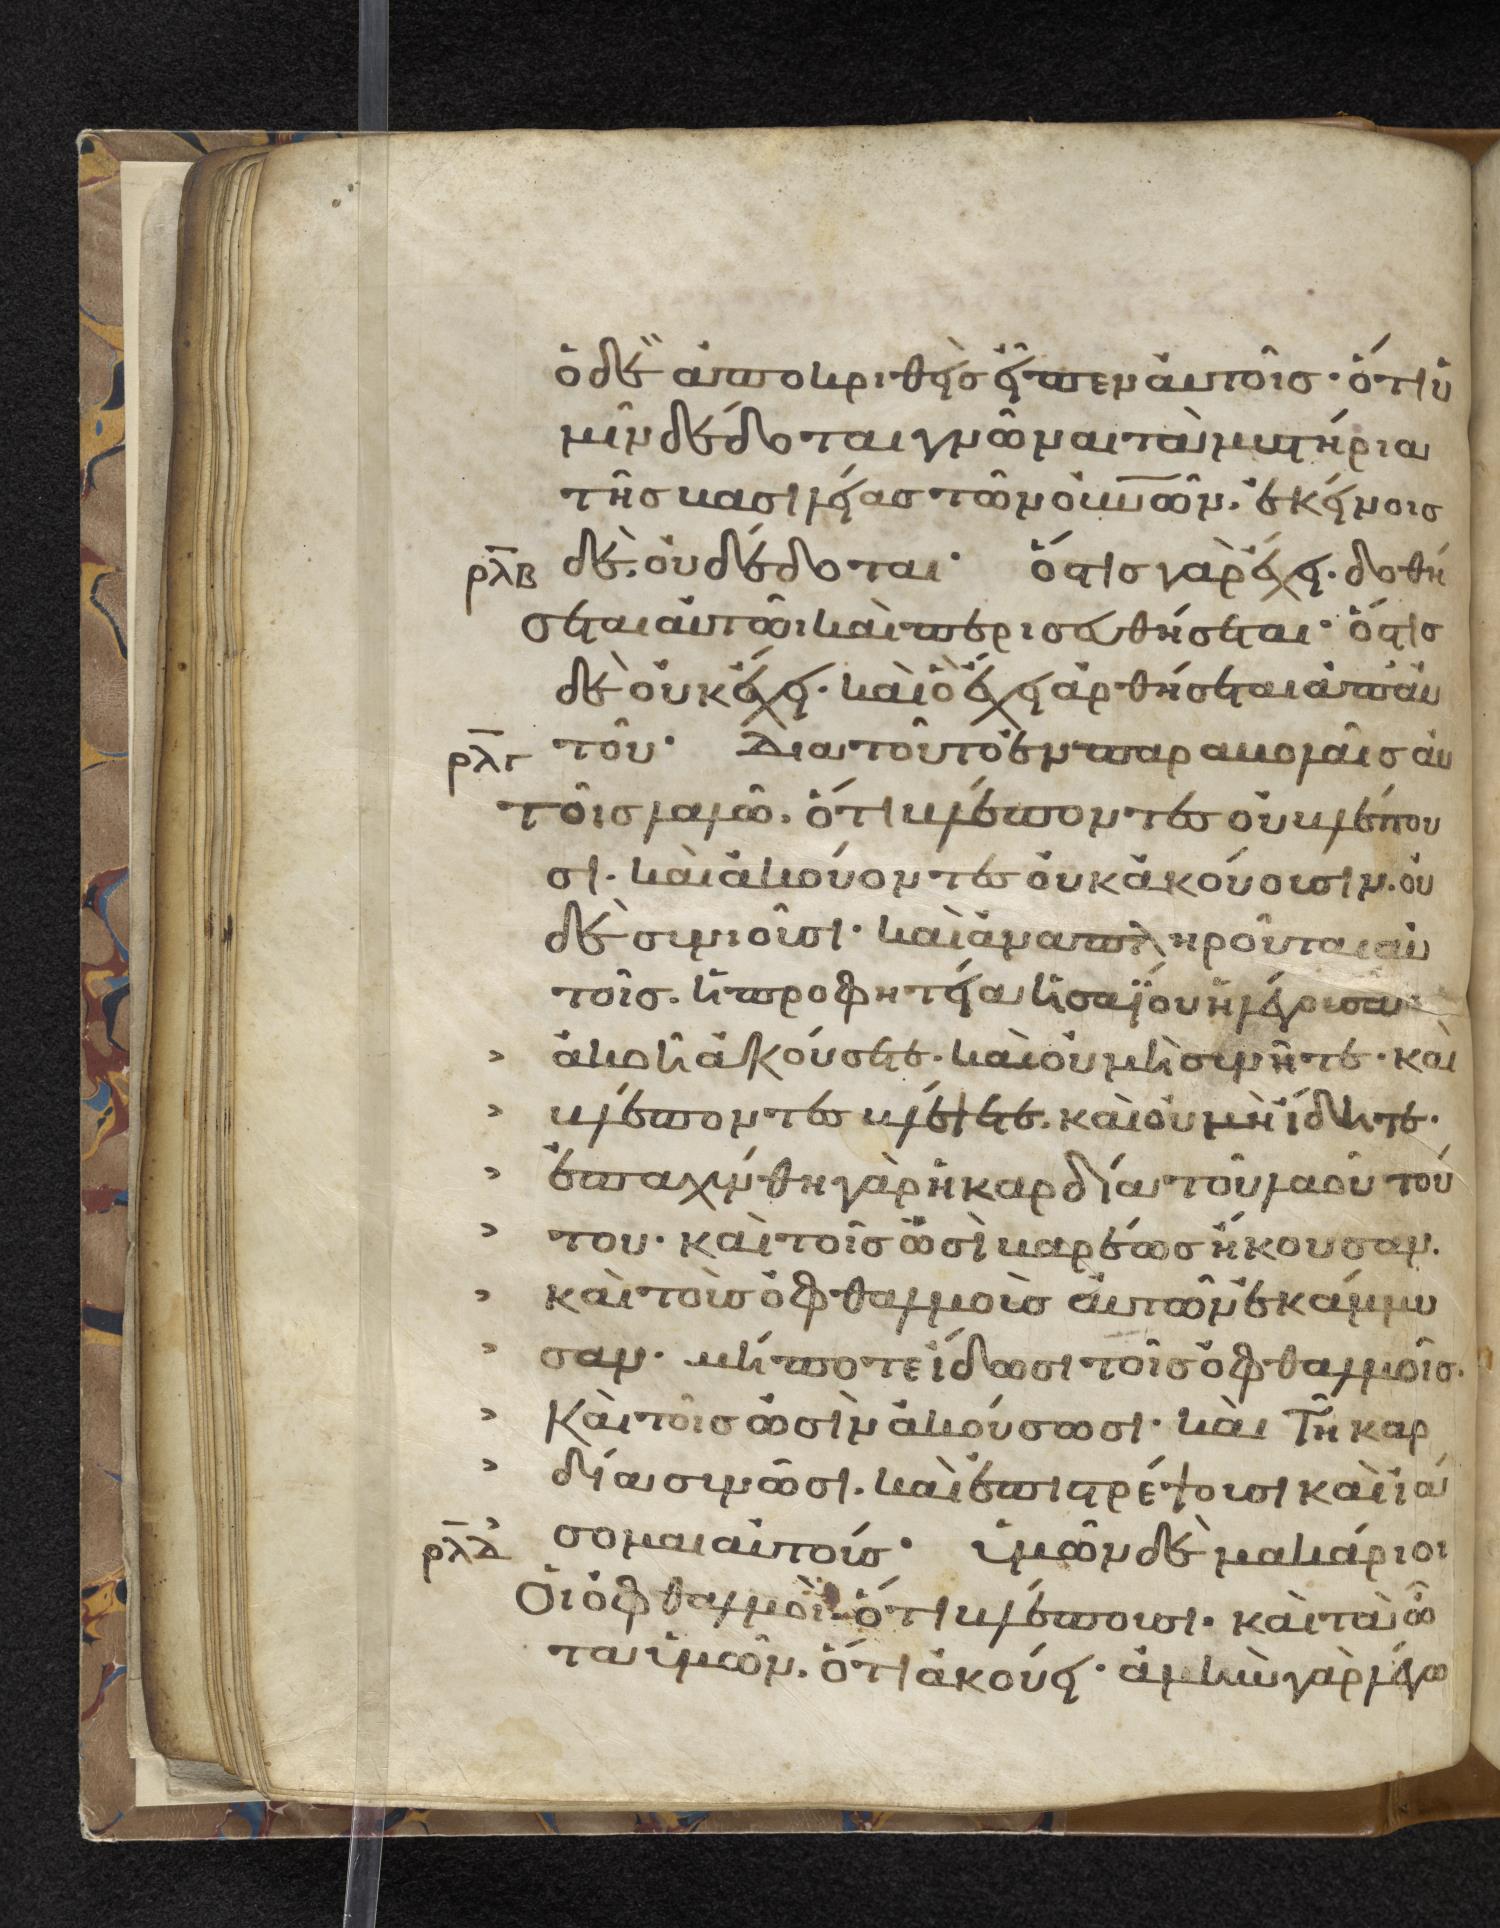 ὁ δὲ ἀποκριθεὶς εἶπεν αὐτοῖς· ὅτι ὑ
μῖν δέδοται γνῶναι τὰ μυστήρια
τῆς βασιλείας τῶν οὐνῶν. ἐκείνοις
ρλβ δὲ. οὐ δέδοται· ὅστις γὰρ ἔχει. δοθή
σεται αὐτῶι καὶ περισσευθήσεται· ὅστις
δὲ οὐκ ἔχει. καὶ ὃ ἔχει ἀρθήσεται ἀπ' αὐ
ρλγ τοῦ· Διατοῦτο ἐν παραβολαῖς αὐ
τοῖς λαλῶ. ὅτι βλέποντες οὐ βλέπου
σι. καὶ ἀκούοντες οὐκ ἀκούουσιν. οὐ
δὲ συνιοῦσι· καὶ ἀναπληροῦται αὐ
τοῖς. ἡ προφητεία ἡσαΐου ἡ λέγουσα·
› ἀκοῆ ἀκούσετε. καὶ οὐ μὴ συνῆτε· καὶ
› βλέποντες βλέψετε. καὶ οὐ μὴ ἴδητε·
› ἐπαχύνθη γὰρ ἡ καρδία τοῦ λαοῦ τού
› του· καὶ τοῖς ὠσὶ βαρέως ἤκουσαν.
› καὶ τοὺς ὀφθαλμοὺς αὐτῶν ἐκάμμυ
› σαν· μήποτε ἴδωσι τοῖς ὀφθαλμοῖς.
› Καὶ τοῖς ὠσὶν ἀκούσωσι· καὶ τῆ καρ
› δία συνῶσι. καὶ ἐπιστρέψουσι καὶ ἰά
› ρλδ σομαι αὐτούς· ὑμῶν δὲ μακάριοι
Οἱ ὀφθαλμοὶ. ὅτι βλέπουσι· καὶ τὰ ὦ
τα ὑμῶν. ὅτι ἀκούει· ἀμὴν γὰρ λέγω